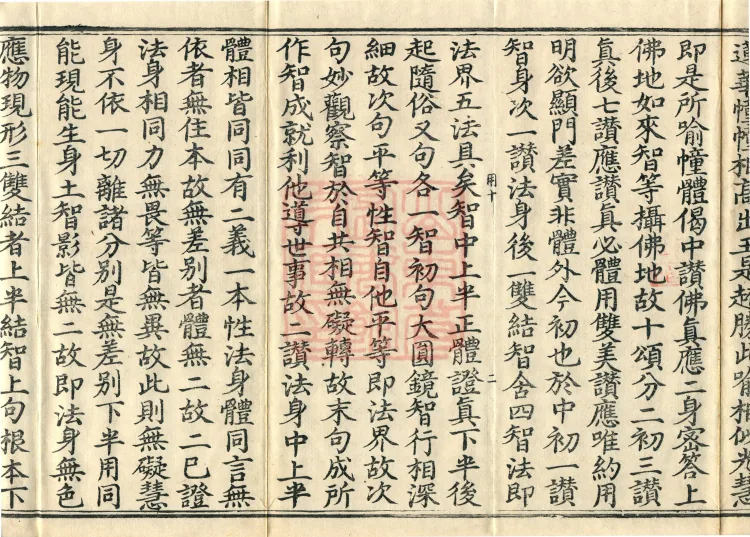 即是所喻幢體偈中讃佛真應二身密答上
佛地如來智等攝佛地故十頌分二初三讃
真後七讃應讃真必體用雙美讃應唯約用
明欲顯門差實非體外今初也於中初一讃
智身次一讃法身後一雙結智含四智法即
用十
二
法界五法具矣智中上半正體證真下半後
起隨俗又句各一智初句大圓鏡智行相深
細故次句平等性智自他平等即法界故次
句妙觀察智於自共相無礙轉故末句成所
作智成就利他導世事故二讃法身中上半
體相皆同同有二義一本性法身體同言無
依者無住本故無差別者體無二故二已證
法身相同力無畏等皆無異故此則無礙慧
身不依一切離諸分別是無差別下半用同
能現能生身土智影皆無二故即法身無色
應物現形三雙結者上半結智上句根本下